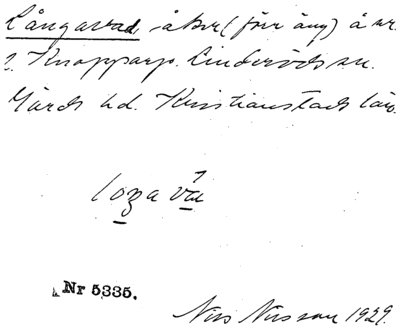 Långavad, åker (förr äng) å nr.
2. Knopparp. Linderöds sn.
Gärds hd. Kristianstads län.
loŋa va
Nr 5335.
Nils Nilsson 1929.